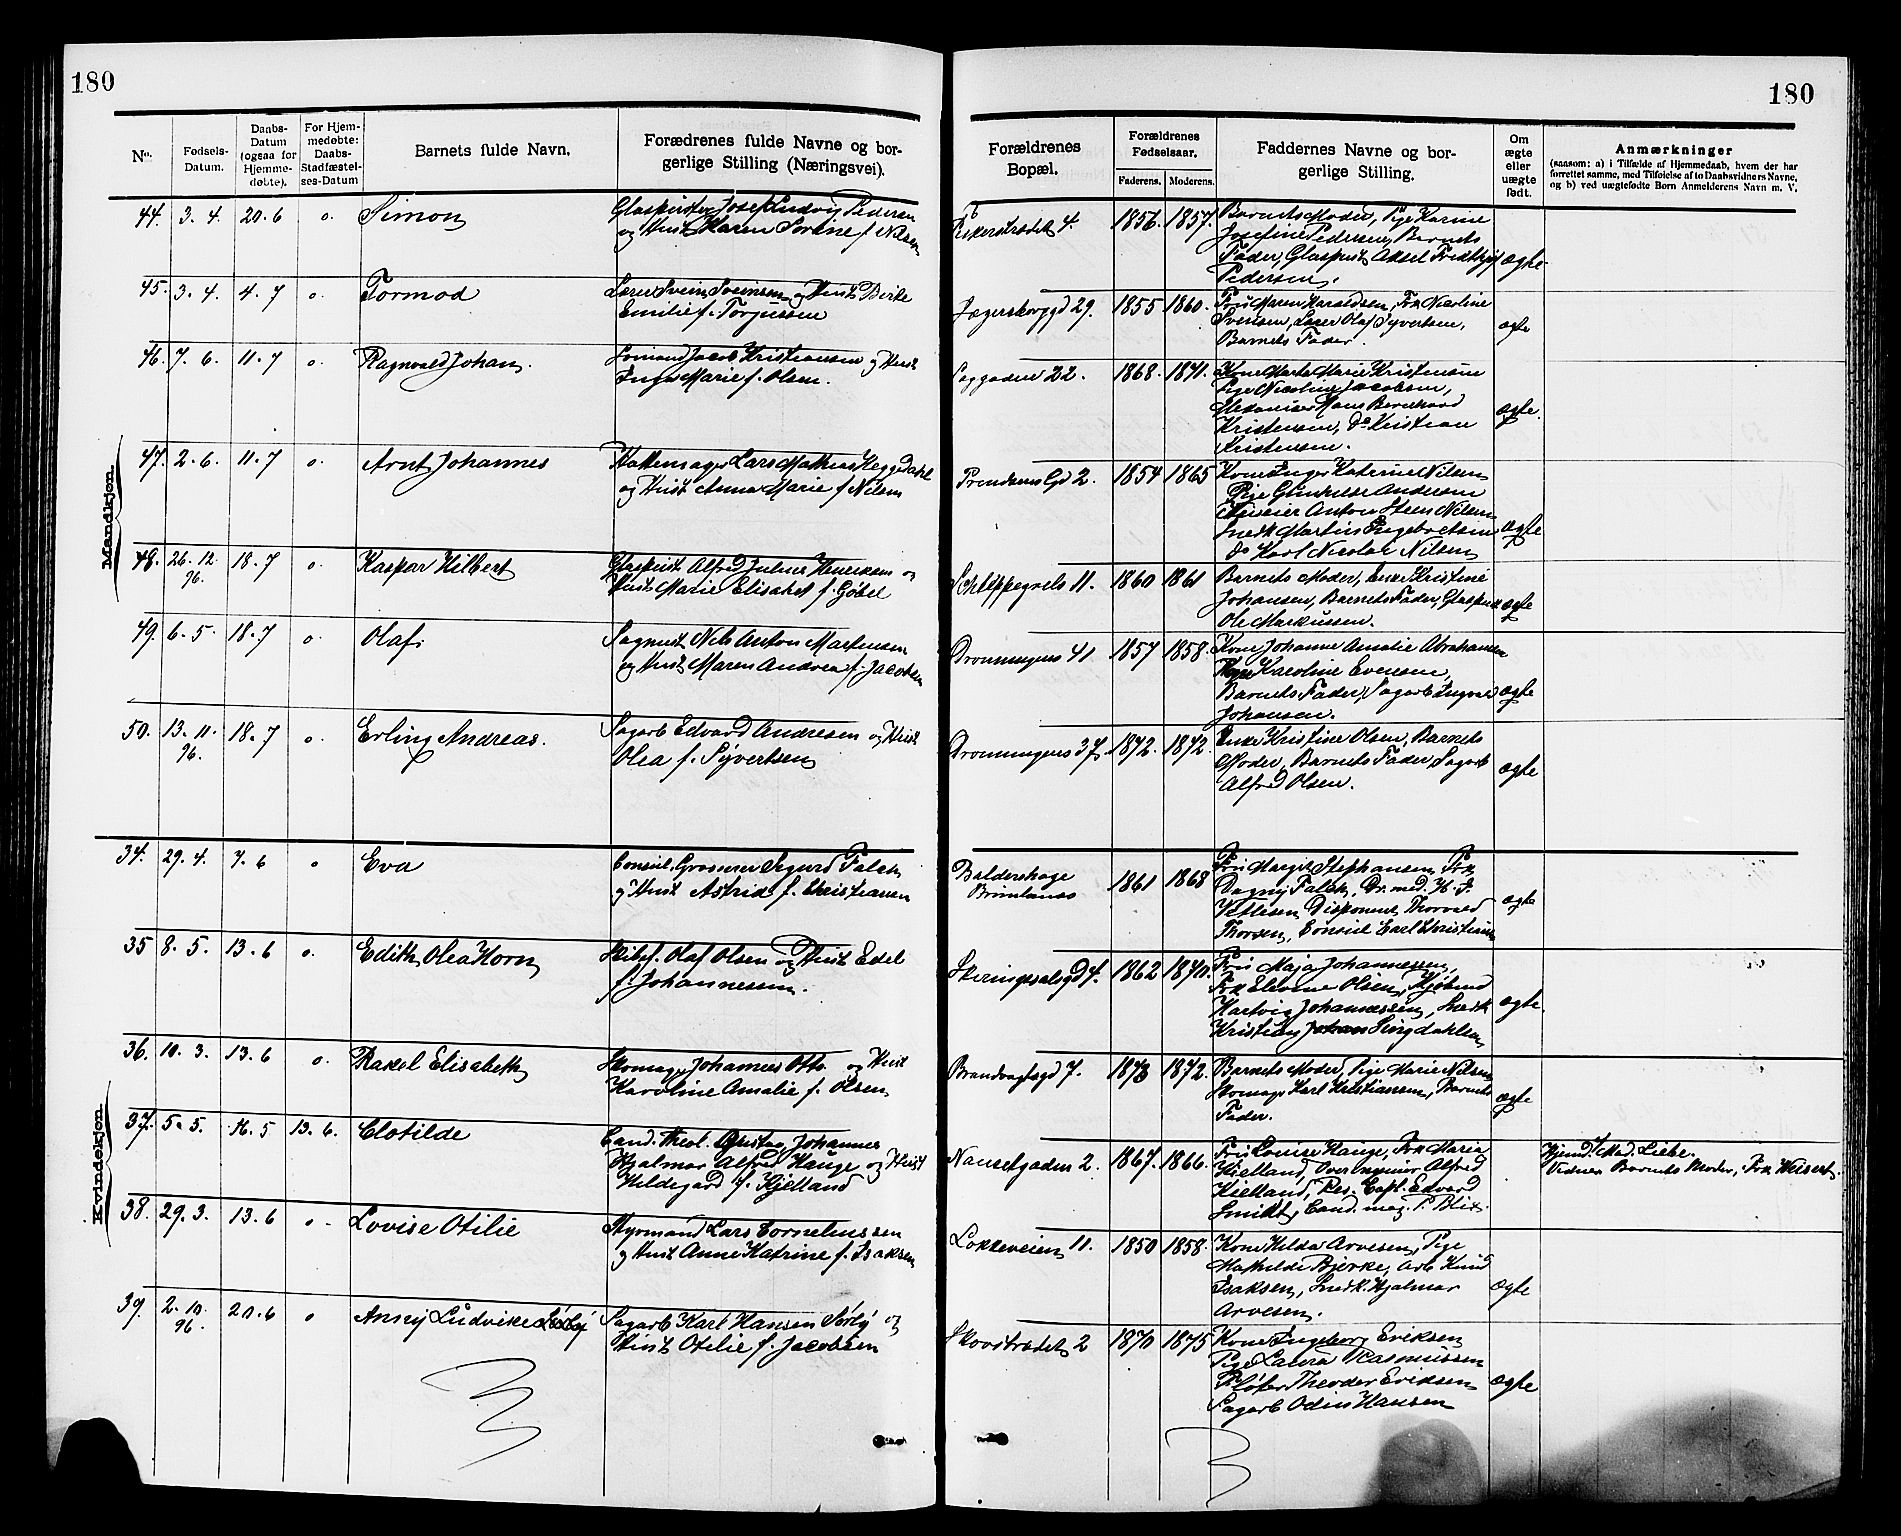 180
180
No.
Fødsels-
Datum.
Daabs-
Datum
(ogsaa for
Hjemme-
døbte).
For Hjem-
medøbte:
Daabs-
Stadfæstel-
ses-Datum
Barnets fulde Navn.
Forædrenes fulde Navne og bor-
gerlige Stilling (Næringsvei).
Forældrenes
Bopæl.
Forældrenes
Fødselsaar.
Faderens. Moderens.
Faddernes Navne og bor-
gerlige Stilling.
Om
ægte
eller
uægte
født.
Anmærkninger
(saasom: a) i Tilfælde af Hjemmedaab, hvem der har
forrettet samme, med Tilføielse af to Daabsvidners Navne,
og b) ved uægtefødte Børn Anmelderens Navn m. V.
Mandkjøn.
44. 3. 4. 20. 6 o. Simon
Josef Ludvig Pedersen
og Hust Maren Sorine f. Nilsen
4. 1856. 1857.
Barnets Moder, Pige Karine
Josefine Pedersen, Barnets
Fader, Glaspust Aksel Fredthjof
Pedersen.
ægte.
45. 3. 4. 4. 7 o. Tormod
Lærer Svein Sveinsen og Hust Berte
Emilie f. Torjussen
29. 1855 1860.
Fru Maren Haraldsen, Frk Nicoline
Svensen, Lærer Olaf Syvertsen,
Barnets Fader.
ægte
46. 7. 6. 11. 7 o. Ragnvald Johan.
Sømand Jacob Kristiansen og Hust
Inger Marie f. Olsen.
Saggaden 22. 1868. 1871.
Kone Marte Marie Kristensen
Pige Nicoline Jacobsen,
Hans Bernhard
Kristensen, Do Kristian
Kristensen.
ægte.
47. 2. 6. 11. 7 o. Arnt Johannes
Hattemager Lars Mathias Heggedahl
og Hust Anna Marie f. Nilsen
2. 1854 1865
Kone Inger Katrine Nilsen
Pige Andersen
Anton Steen Nilsen
Snedk Martin Ingebretsen
Do Karl Nicolai Nilsen
ægte
48. 26. 12. 96. 18. 7 o. Kaspar Hilbert
Glaspust Alfred Julius Henriksen og
Hust Marie Elisabet f. Gøbel
11. 1860 1861
Barnets Moder, Enke Kristine
Johansen, Barnets Fader, Glaspust
Ole Markussen.
ægte
49. 6. 5. 18. 7 o. Olaf.
Nils Anton Martensen
og Hust Maren Andrea f. Jacobsen
Dronningens 41 1857 1858.
Kone Johanne Amalie Abrahamsen
Karoline Evensen,
Barnets Fader, Sagarb
Johansen.
ægte
50. 13. 11. 96. 18. 7 o. Erling Andreas.
Sagarb Edvard Andresen og Hust
Olea f. Syvertsen
Dronningens 37. 1872. 1872
Enke Kristine Olsen, Barnets
Moder, Barnets Fader, Sagarb
Alfred Olsen.
ægte
Kvindekjøn.
34. 29. 4. 7. 6 o Eva
Consul, Grosserer Sigurd Falck
og Hust Astrid f. Christiansen
1861 1868
Fru Margit Stephansen, Frk
Dagny Falck, Dr. med. H. J.
Vetlesen, Disponent Thorvald
Thorsen, Consul Carl Christiansen
ægte
35 8. 5. 13. 6 o. Edith Olea Horn
Skibsf. Olaf Olsen og Hust Edel
f. Johannessen.
Skiringssalsgd 4. 1862 1870.
Fru Maja Johannessen,
Frk Olsen, Kjøbmd
Hartvig Johannessen, Snedk
Kristian Johan
ægte.
36. 10. 3. 13. 6 o. Rakel Elisabeth
Skomag. Johannes Otto og Hust
Karoline Amalie f. Olsen
Brandvagtsgd 7. 1873 1872.
Barnets Moder, Pige Marie Nilsen
Skomag Karl Kristiansen, Barnets
Fader.
ægte
37. 5. 5. 16. 5 13. 6. Clotilde
Cand. theol. Gustav Johannes
Hjalmar Alfred Hauge og Hust
Hildegard f. Kjelland
Nansetgaden 2. 1867. 1866.
Fru Lovise Hauge, Frk Maria
Kielland, Overingeniør Alfred
Kielland, Res. Capl. Edvard
Smidt, Cand. mag. P. Blix.
Hjemd. Mad. Liebe.
Vidner Barnets Moder, Frk Weisert.
38. 29. 3. 13. 6 o. Lovise Otilie
Styrmand Lars Corneliussen
og Hust Anne Katrine f. Isaksen
Løkkeveien 11. 1850 1858.
Kone Hilda Arvesen, Pige
Mathilde Bjerke, Arb Knud
Isaksen, Snedk. Hjalmar
Arvesen.
ægte
39. 2. 10. 96. 20. 6 o Anny Ludvikke Sørby
Sagarb Karl Hansen Sørby og
Hust Otilie f. Jacobsen
Skovstrædet 2 1870 1875
Kone Ingeborg Eriksen
Pige Laura Rasmussen
Theodor Eriksen
Sagarb Odin Hansen
ægte